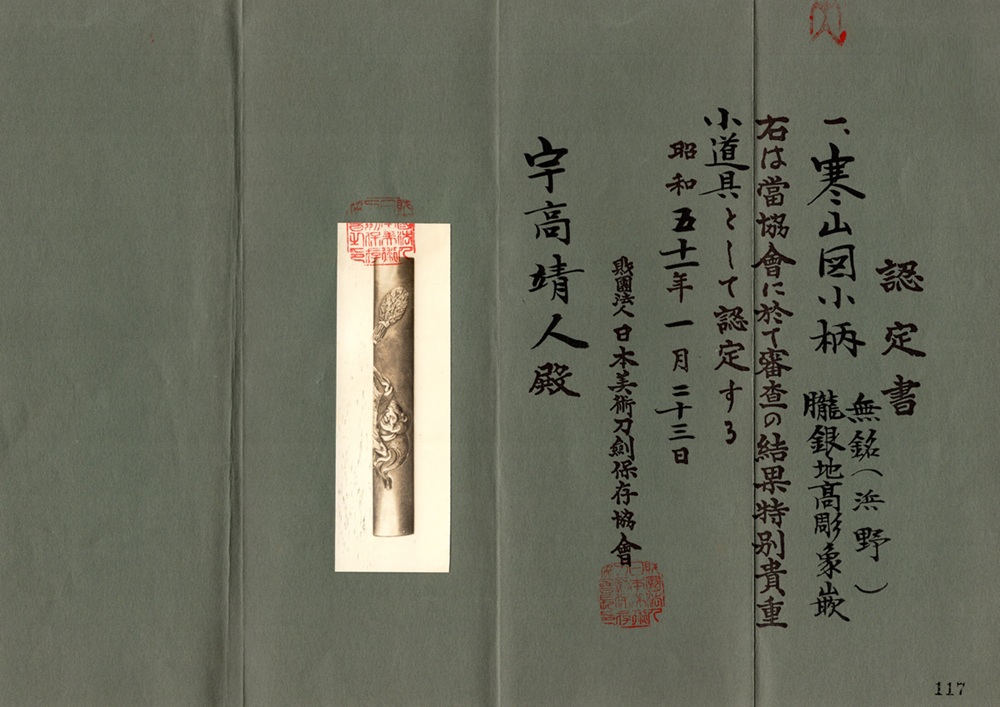 認定書
一、寒山図小柄
無銘（浜野）
朧銀地高彫象嵌
右は當協會に於て審査の結果特別貴重
小道具として認定する
昭和五十一年一月二十三日
財團法人日本美術刀劍保存協會
宇高靖人殿
117